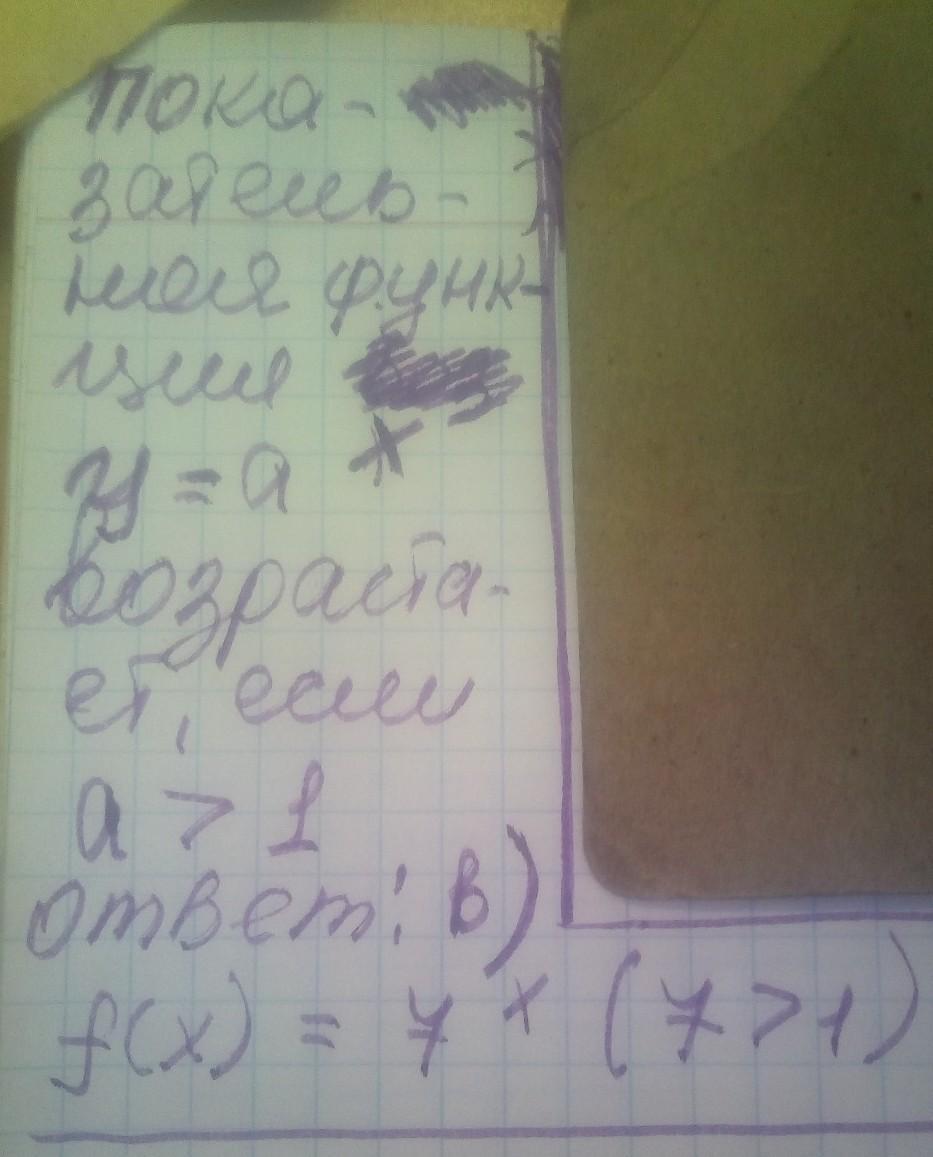 пока-
затель-
ная функ-
ция
y = a ˣ
возраста-
ет, если
a > 1
ответ: в)
f(x) = 7 ˣ (7 > 1)